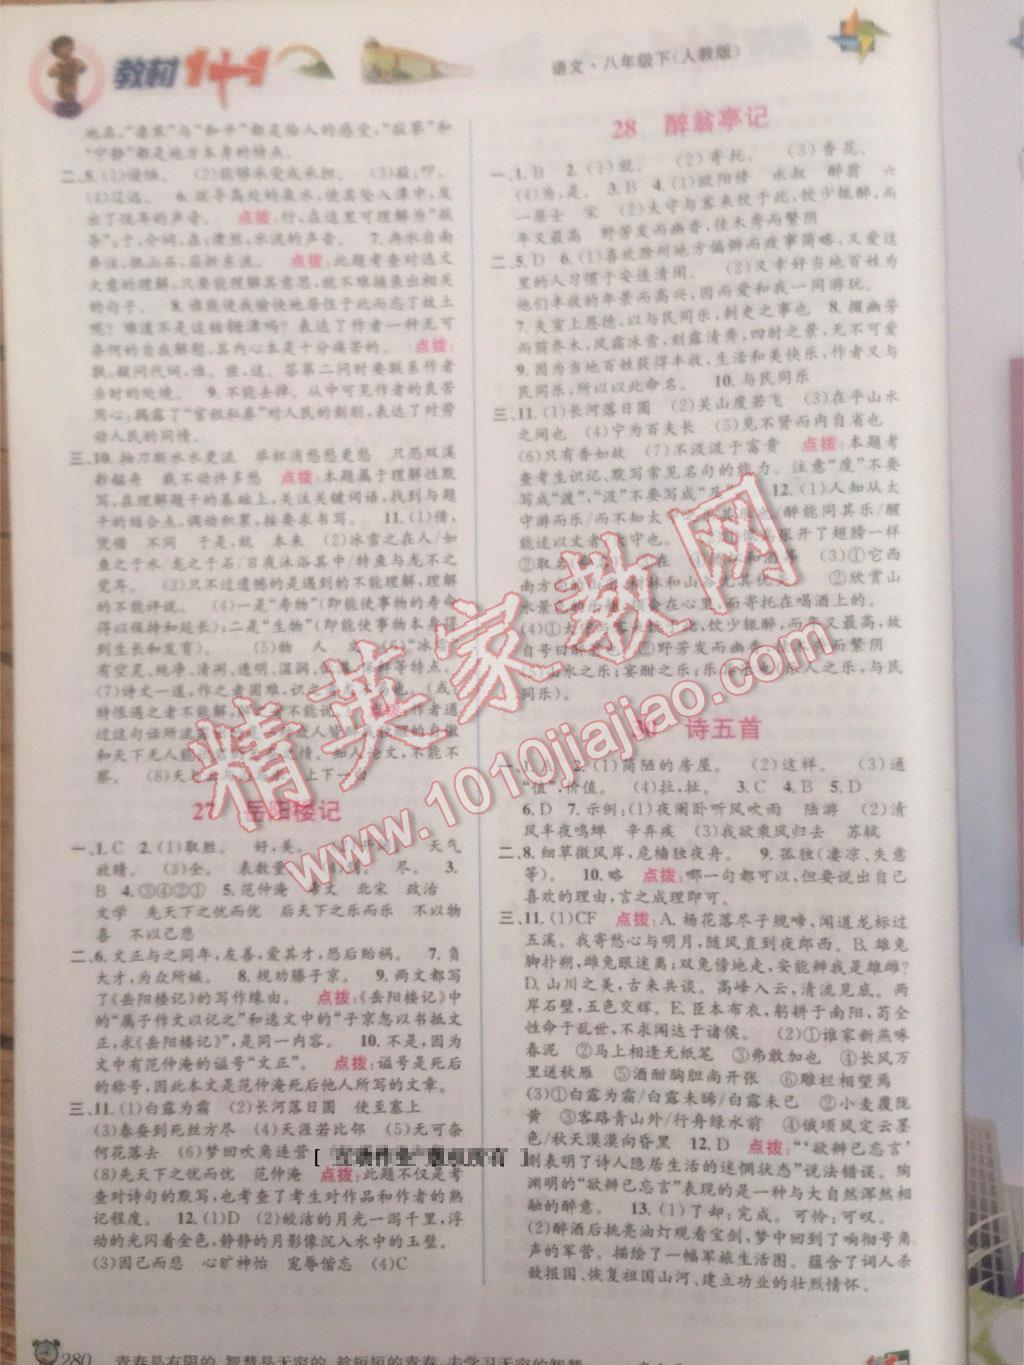 教材1+1
语文·八年级下(人教版)
地名,"凄寒"与"和平"都是给人的感受,"寂寥"和
"宁静"都是地方本身的特点。
(4)辽远。 6.疏导高处的泉水,使其坠入潭中,发
出了悦耳的声音。 点拨:行,在这里可理解为"疏
等";于,介词,在;潀然,水流的声音。 7.冉水自南
奔注,抵山石,屈折东流。 点拨:此题考查对选文
大意的理解,只要能理解其意思,就不难摘录出相关
的句子。 8.谁能使我愉快地居住于此而忘了故土
呢?难道不是这钴𬭁潭吗?表达了作者一种无可
奈何的自我解慰,其内心本是十分痛苦的。 点拨:
孰,疑问代词,谁。兹,这。答第二问时要联系作者
当时的处境。 9.不能去掉。从中可见作者的良苦
用心:揭露了"官租私券"对人民的剥削,表达了对劳
动人民的同情。
三、10.抽刀断水水更流 举杯消愁愁更愁 只恐双溪
舴艋舟 载不动许多愁 点拨:本题属于理解性默
写,在理解题干的基础上,关注关键词语,找到与题
干的结合点,调动积累,按要求书写。 11.(1)借,
凭借 不同 于是,就 本来 (2)冰雪之在人/如
鱼之于水/龙之于石/日夜沐浴其中/特鱼与龙不之
觉耳。 (3)只不过遗憾的是遇到的不能理解,理解
的不能评说。 (4)一是"寿物"(即能使事物的寿命
得以保持和延长);二是"生物"(即能使事物本身得
到生长和发育)。 (5)物 人 文 (6)"冰雪
有空灵、纯净、清冽、透明、湿润、
(7)诗文一道,作之者困难,识之
特恨遇之者不能解,解之者不能说
和天下无人能
察。 (8)天
27 岳阳楼记
一、1.C 2.(1)取胜。 好,美。 天气
放晴。 (3)全。 表数量 尽。 3.
B 4.③④②① 5.范仲淹 北宋 政治
文学 先天下之忧而忧 后天下之乐而乐 不以物
喜 不以己悲
二、6.文正与之同年,友善,爱其才,恐后贻祸。 7.负
大才,为众所嫉。 8.规劝滕子京。 9.两文都写
了《岳阳楼记》的写作缘由。 点拨:《岳阳楼记》中
的"属予作文以记之"和选文中的"子京忽以书抵文
正,求《岳阳楼记》",是同一内容。 10.不是,因为
文中有范仲淹的谥号"文正"。 点拨:谥号是死后
的称号,因此本文是范仲淹死后他人所写的文章。
三、11.(1)白露为霜 (2)长河落日圆 使至塞上
(3)春蚕到死丝方尽 (4)天涯若比邻 (5)无可奈
何花落去 (6)梦回吹角连营
(8)先天下之忧而忧 范仲淹 点拨:此题不仅是考
查对诗句的默写,也考查了考生对作品和作者的熟
记程度。 12.(1)D (2)皎洁的月光一泻千里,浮
动的光闪着金色,静静的月影像沉入水中的玉璧。
(3)因己而悲 心旷神怡 宠辱偕忘 (4)C
28 醉翁亭记
一、1.B 2.(1)就。 (2)寄托。 (3)香花。
(4)为,是。 3.B 4.(1)欧阳修 永叔 醉翁 六
一居士 宋 (2)太守与客来饮于此,饮少辄醉,而
年又最高 野芳发而幽香,佳木秀而繁阴
二、5.D 6.(1)喜欢滁州地方偏僻而政事简略,又爱这
里的人习惯于安适清闲。 (2)又幸好当地百姓为
他们丰收的年景而高兴,因而爱和我一同游玩。
7.夫宣上恩德,以与民同乐,刺史之事也 8.掇幽芳
而荫乔木,风霜冰雪,刻露清秀,四时之景,无不可爱
9.因为当地百姓获得丰收,生活和美快乐,作者又与
民同乐,所以以此命名。 10.与民同乐
三、11.(1)长河落日圆 (2)关山度若飞 (3)在乎山水
之间也 (4)宁为百夫长 (5)见不贤而内自省也
(6)只有香如故 (7)不汲汲于富贵 点拨:本题考
查考生识记、默写常见名句的能力。注意"度"不要
写成"渡","汲"不要写成"及" 12.(1)人知从太
守游而乐/而不知太 乐其乐也/醉能同其乐/醒
能述以文者/太守也。 张开了翅膀一样
②取名 (3)①它西
南方向的山 林和山谷尤其优 ②欣赏山
水景色的乐趣,领会在心里,而寄托在喝酒上的。
(4)①太守与客来饮于此,饮少辄醉,而年又最高,故
自号曰醉翁也 ②野芳发而幽香,佳木秀而繁阴
(5)山水之乐;宴酣之乐;乐 人之乐,与民
同乐)。
30 诗五首
一、1.A 2.(1)简陋的房屋。 (2)这样。 (3)通
"值",价值。 (4)拉,扯。 3.C 4.B 5.D
6.D 7.示例:(1)夜阑卧听风吹雨 陆游 (2)清
风半夜鸣蝉 辛弃疾 (3)我欲乘风归去 苏轼
二、8.细草微风岸,危樯独夜舟。 9.孤独(凄凉、失意
等)。 10.略 点拨:哪一句都可以,但要说出自己
喜欢的理由,言之成理即可。
三、11.(1)CF 点拨:A.杨花落尽子规啼,闻道龙标过
五溪。我寄愁心与明月,随风直到夜郎西。B.雄兔
脚扑朔,雌兔眼迷离;双兔傍地走,安能辨我是雄雌?
D.山川之美,古来共谈。高峰入云,清流见底。两
岸石壁,五色交辉。E.臣本布衣,躬耕于南阳,苟全
性命于乱世,不求闻达于诸侯。 (2)①谁家新燕啄
春泥 ②马上相逢无纸笔 ③弗敢加也 ④长风万
里送秋雁 ⑤酒酣胸胆尚开张 ⑥雕栏相望焉
(3)①白露为霜/白露未晞/白露未已 ②小麦覆陇
黄 ③客路青山外/行舟绿水前 ④俄顷风定云墨
色/秋天漠漠向昏黑 12.D 点拨:"'欲辨已忘言'
则表明了诗人隐居生活的迷惘状态"说法错误。陶
渊明的"欲辨已忘言"表现的是一种与大自然浑然相
融的醉意。 13.(1)了却:完成。可怜:可叹。
(2)醉酒后挑亮油灯观看宝剑,梦中回到了响彻号角
声的军营。描绘了一幅军旅生活图。蕴含了词人杀
敌报国、恢复祖国山河、建立功业的壮烈情怀。
精英家教网
www.1010jiajiao.com
280